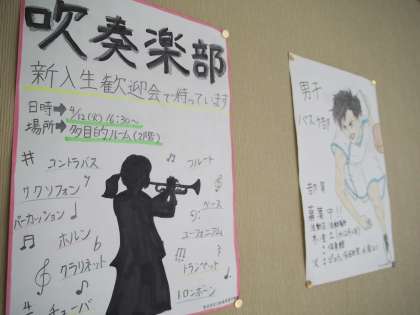 吹奏楽部
新入生歓迎会で待っています
日時→4/12(火)16:30～
場所→多目的ルーム(2階)
コントラバス
フルート
サクソフォン
ベース
パーカッション
ユーフォニアム
ホルン
トランペット
クラリネット
トロンボーン
チューバ
男子
バスケ部
部員
募集中!!